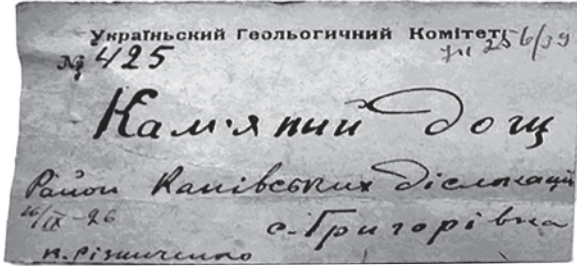 Украіньский Геольогичний Комітет
№ 425 256/39
Кам'яний дощ
Район Канівських дісльокацій
16/IX-26 с. Григорівка
в. різниченко